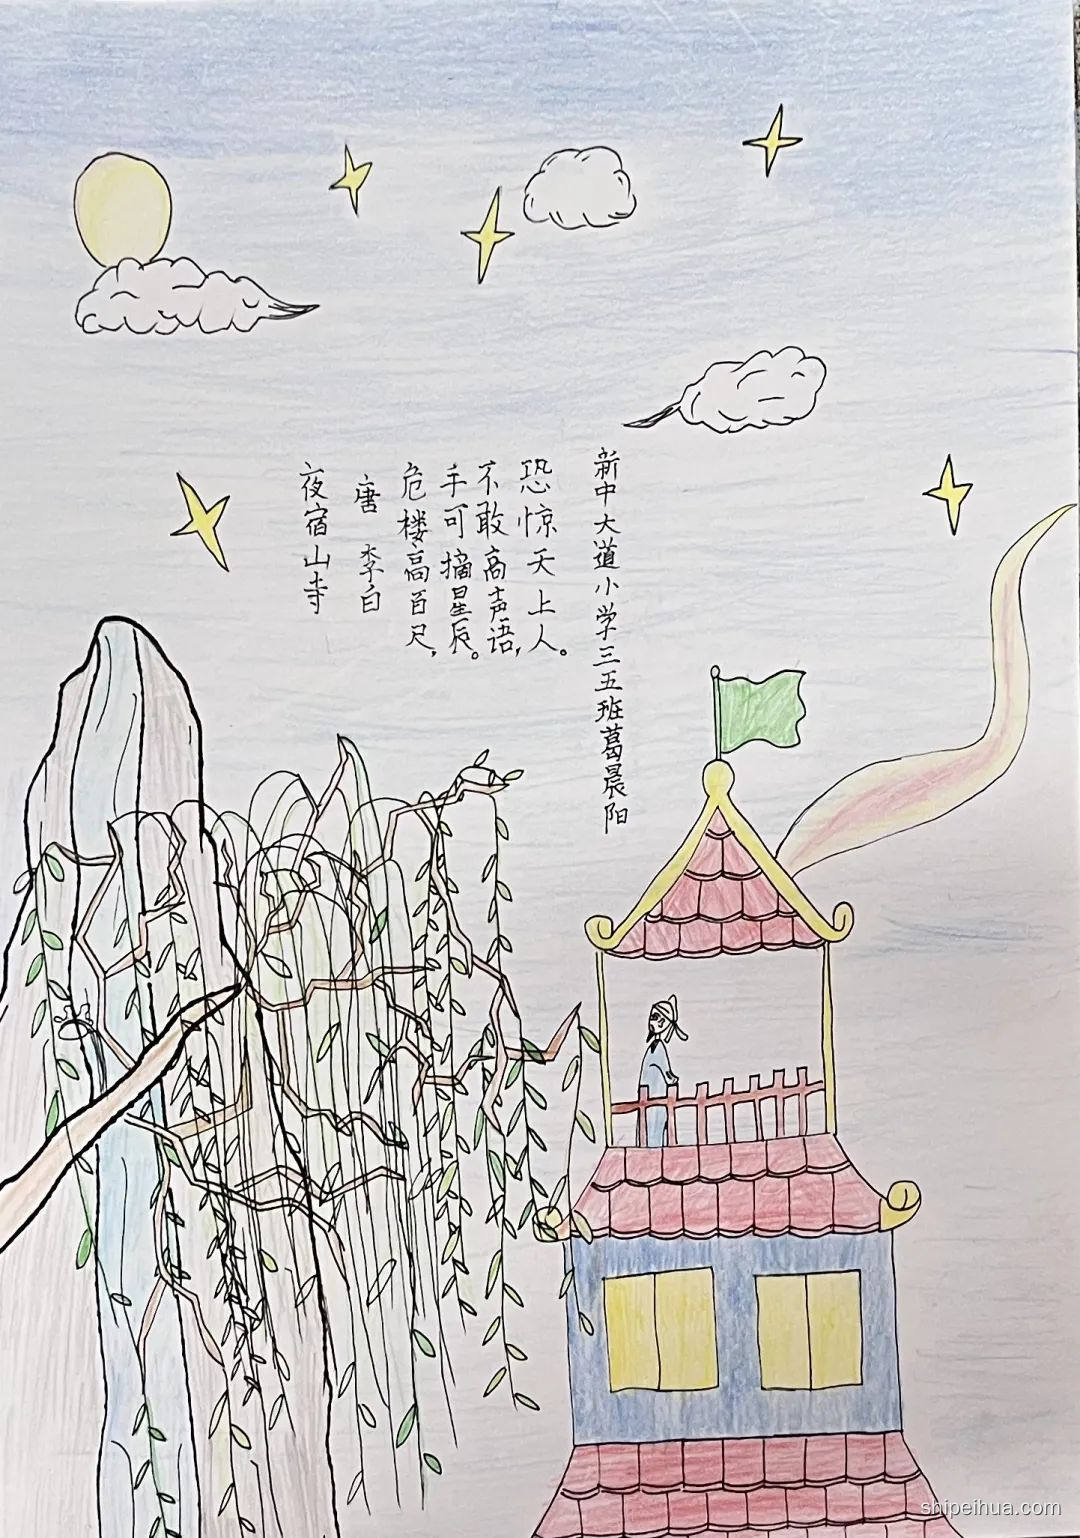 夜宿山寺
唐 李白
危楼高百尺，
手可摘星辰。
不敢高声语，
恐惊天上人。
新中大道小学三五班葛晨阳
shipeihua.com